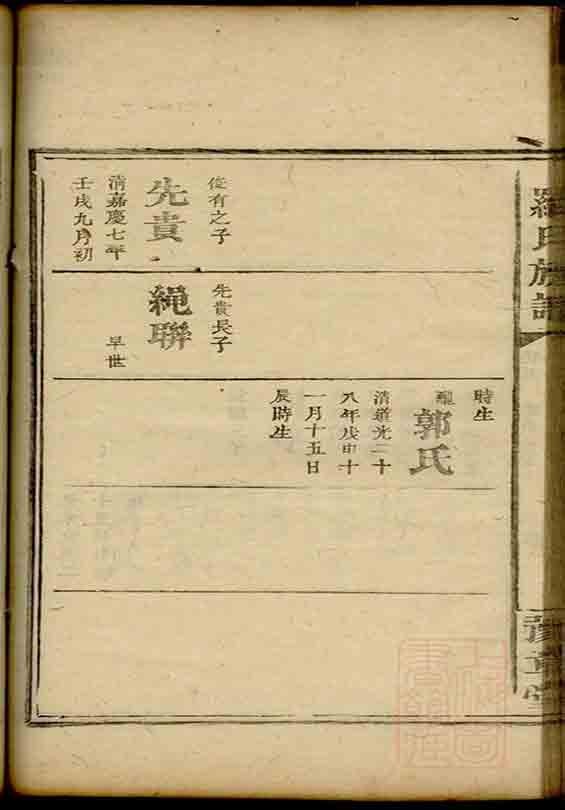 羅氏族譜
從有之子
先貴
清嘉慶七年
壬戌九月初
先貴長子
繩聯
早世
時生
配
郭氏
清道光二十
八年戊申十
一月十五日
辰時生